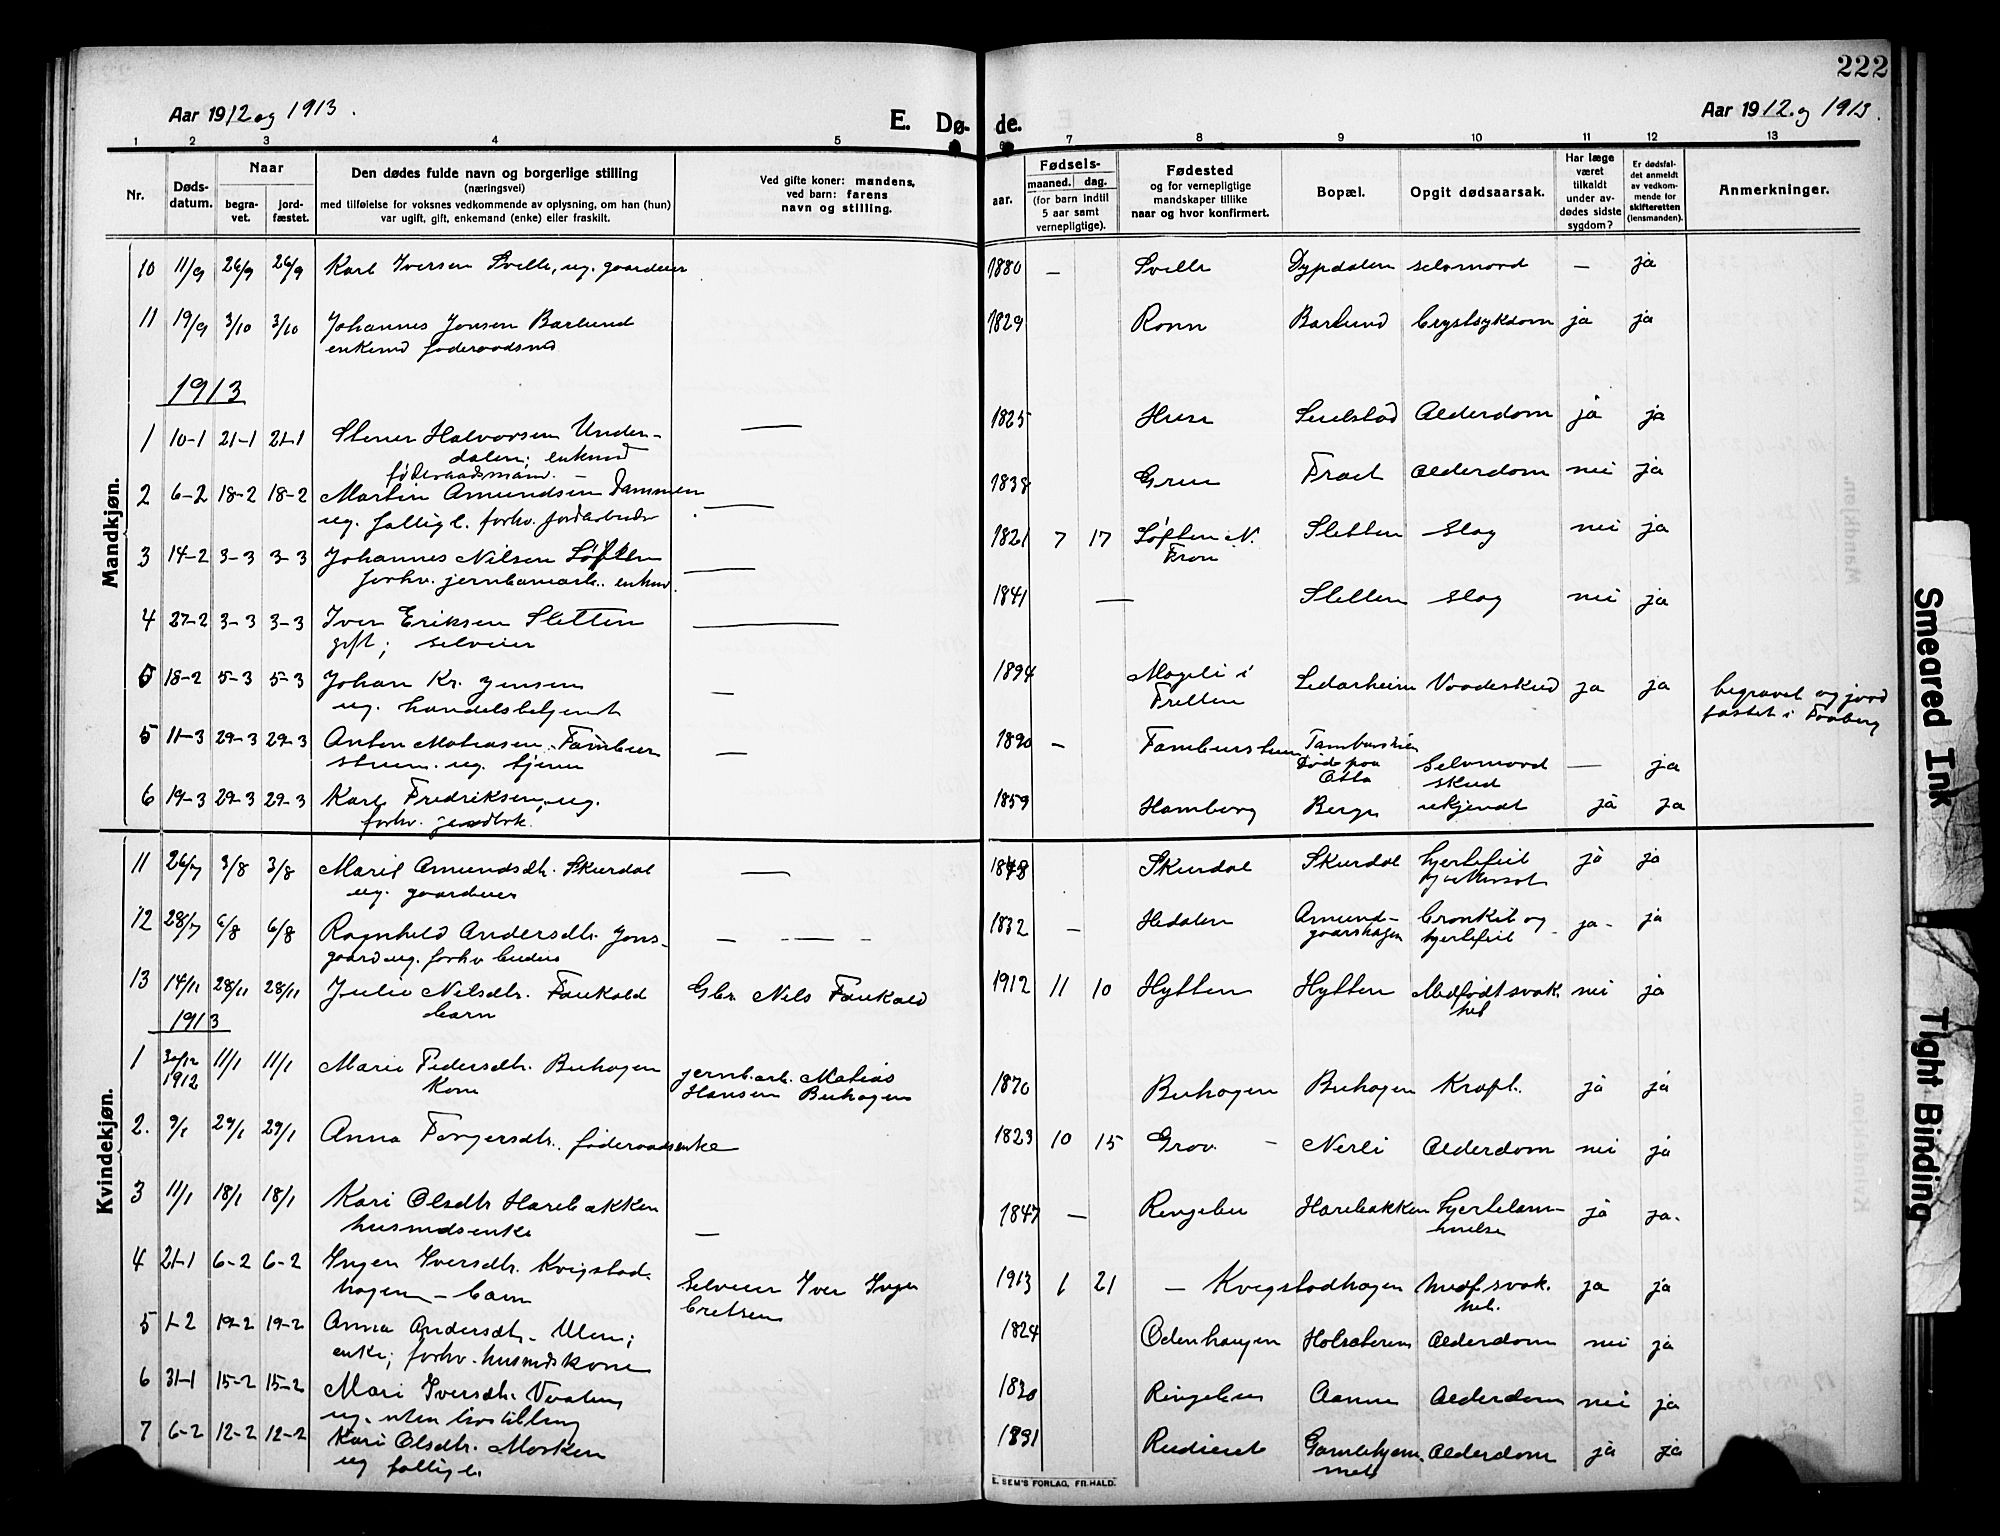 222
Aar 1912 og 1913.
E. Dø-
de.
Aar 1912 og 1913.
1 2 3 4 5
6 7 8 9 10 11 12 13
Nr.
Døds-
datum.
Naar
begra-
vet.
jord-
fæstet.
Den dødes fulde navn og borgerlige stilling
(næringsvei)
med tilføielse for voksnes vedkommende av oplysning, om han (hun)
var ugift, gift, enkemand (enke) eller fraskilt.
Ved gifte koner: mandens,
ved barn: farens
navn og stilling.
Fødsels-
aar.
maaned. dag.
(for barn indtil
5 aar samt
vernepligtige).
Fødested
og for vernepligtige
mandskaper tillike
naar og hvor konfirmert.
Bopæl.
Opgit dødsaarsak.
Har læge
været
tilkaldt
under av-
dødes sidste
sygdom?
Er dødsfal-
det anmeldt
av vedkom-
mende for
skifteretten
(lensmanden).
Anmerkninger.
Mandkjøn.
10 11/9 26/9 26/9 Karl Iversen Svelle, ug. gaardeier 1880 — Svelle Dypdalen selvmord — ja
11 19/9 3/10 3/10 Johannes Jonsen Barlund 1829 Ronn Barlund Brystsykdom ja ja
enkemd føderaadsmd
1913
1 10-1 21-1 21-1 Stener Halvorsen Under- — 1825 ja ja
dalen; enkemd
føderaadsmann. —
2 6-2 18-2 18-2 Martin Amundsen Dammen — 1838 Alderdom nei ja
ug. fattigl. forhv. jordarbeider
3 14-2 3-3 3-3 Johannes Nilsen Løften — 1821 7 17 Løften N. Sletten Slag nei ja
Fron
forhv. jernbanearb. enkmd.
4 27-2 3-3 3-3 Iver Eriksen Sletten — 1841 — Sletten Slag nei ja
gift; selveier
5 18-2 5-3 5-3 Johan Kr. Jensen — 1894 Mageli i Vaadeskud ja ja begravet og jord
Tretten fæstet i Faaberg
ug. handelsbetjent
5 11-3 29-3 29-3 Anton Matiasen — 1890 — Selvmord — ja
Døde paa skud
Otta
ug. tjener
6 19-3 29-3 29-3 Karl Fredriksen, ug. 1859 Hamberg Berge ukjendt ja ja
forhv.
Kvindekjøn.
11 26/7 3/8 3/8 Marit Amundsdtr. Skurdal — 1848 Skurdal Skurdal hjertefeil ja ja
ug. gaardeier
12 28/7 6/8 6/8 Ragnhild Andersdtr. Jons- — — — 1832 — Hedalen Amund- Bronkit og ja- ja
gaard ug. forhv. budeie gaardshagen hjertefeil
13 14/11 28/11 28/11 Julie Nilsdtr. Faukald Gbr. Nils Faukald 1912 11 10 Hytten Hytten Medfødt svak- nei ja
barn het
1913
1 30/12 11/1 11/1 Marie Pedersdtr. Buhagen jernb.arb. Matias 1870 Buhagen Buhagen Kræft. ja ja
1912 Kone Hansen Buhagen
2. 9/1 29/1 29/1 Anna Torgersdtr. føderaadsenke 1823 10 15 Grov — Nerli Alderdom nei ja
3 11/1 18/1 18/1 Kari Olsdtr. Harebakken 1847 — Ringebu Harebakken hjertelam- ja ja.
husmdsenke — melse
4 21-1 6-2 6-2 Inger Iversdtr. Kvigstad- Selveier Iver Inge- 1913 1 21 — Kvigstadhagen medf. svak- ja ja
hagen — barn bretsen het.
5 1-2 19-2 19-2 Anna Andersdtr. Ulen; 1824 Alderdom nei ja
enke; forhv. husmdskone
6 31-1 15-2 15-2 Mari Iversdtr. 1830 Ringebu Aanne Alderdom nei ja
ug. uten livsstilling
7 6-2 12-2 12-2 Kari Olsdtr. Morken 1831 Alderdom ja ja
ug fattigl.
E. SEM'S FORLAG, FR.HALD.
Smeared Ink
Tight Binding